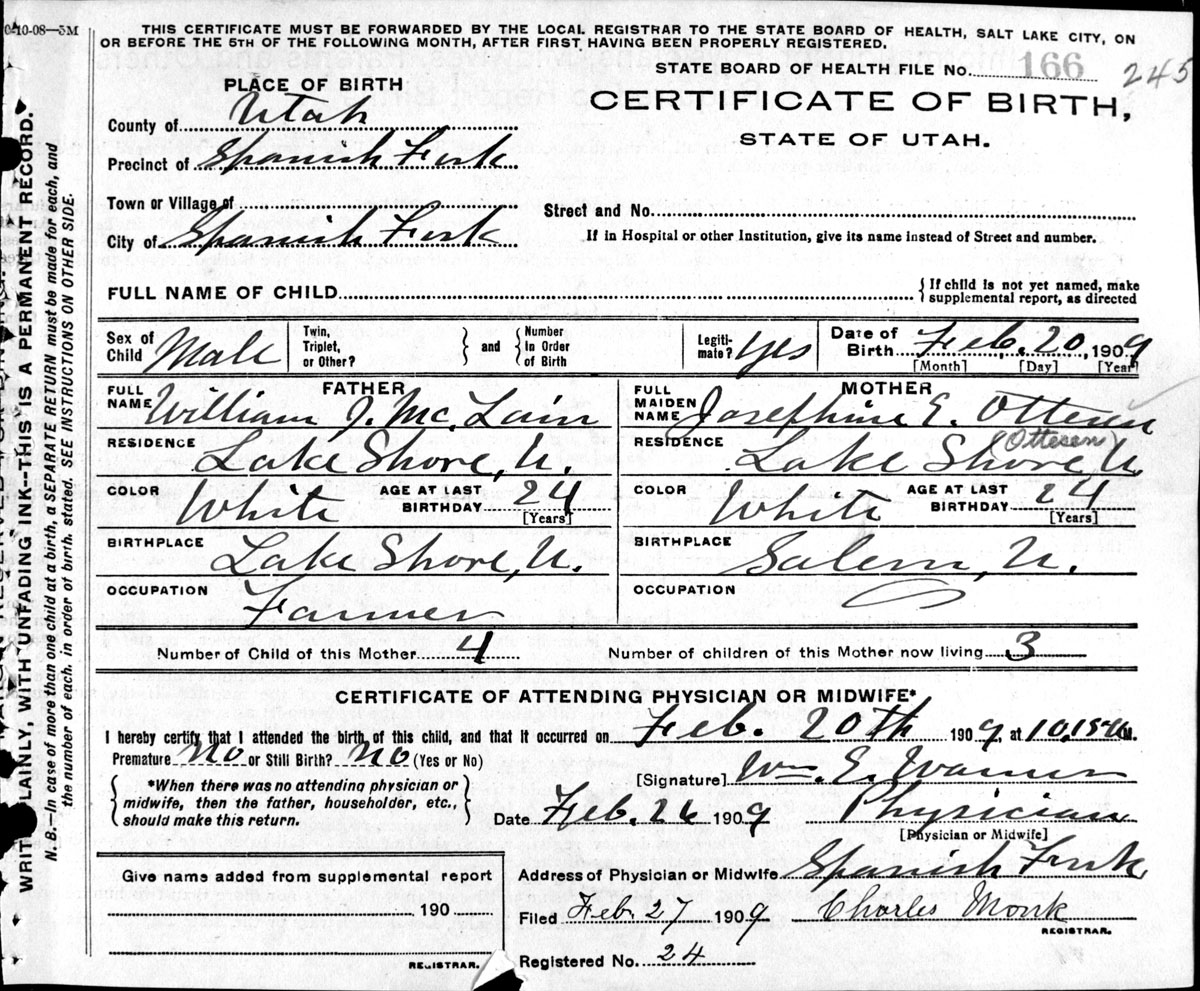 0-10-08—5M
THIS CERTIFICATE MUST BE FORWARDED BY THE LOCAL REGISTRAR TO THE STATE BOARD OF HEALTH, SALT LAKE CITY, ON
OR BEFORE THE 5TH OF THE FOLLOWING MONTH, AFTER FIRST HAVING BEEN PROPERLY REGISTERED.
STATE BOARD OF HEALTH FILE No. 166 245
PLACE OF BIRTH
CERTIFICATE OF BIRTH,
STATE OF UTAH.
County of Utah
Precinct of Spanish Fork
Town or Village of
Street and No.
City of Spanish Fork
If in Hospital or other Institution, give its name instead of Street and number.
FULL NAME OF CHILD
{ If child is not yet named, make
supplemental report, as directed
Sex of Child Male
Twin, Triplet, or Other? } and { Number In Order of Birth
Legiti-mate? Yes
Date of Birth Feb. 20, 1909
[Month] [Day] [Year]
FATHER
FULL NAME William J. McLain
RESIDENCE
Lake Shore, U.
COLOR White AGE AT LAST BIRTHDAY 24
[Years]
BIRTHPLACE
Lake Shore, U.
OCCUPATION
Farmer
MOTHER
FULL MAIDEN NAME Josephine E. Ottesen
(Ottesen)
RESIDENCE
Lake Shore, U.
COLOR White AGE AT LAST BIRTHDAY 24
[Years]
BIRTHPLACE
Salem, U.
OCCUPATION
Number of Child of this Mother 4
Number of children of this Mother now living 3
CERTIFICATE OF ATTENDING PHYSICIAN OR MIDWIFE*
I hereby certify that I attended the birth of this child, and that it occurred on Feb. 20th 1909, at 10,15 M.
Premature No or Still Birth? No (Yes or No)
[Signature] Wm. E. Warner
{ *When there was no attending physician or
midwife, then the father, householder, etc.,
should make this return. }
Date Feb. 26 1909 Physician
[Physician or Midwife]
Address of Physician or Midwife Spanish Fork
Filed Feb. 27 1909 Charles Monk
REGISTRAR.
Registered No. 24
Give name added from supplemental report
190
REGISTRAR.
WRITE PLAINLY, WITH UNFADING INK--THIS IS A PERMANENT RECORD.
N. B.—In case of more than one child at a birth, a SEPARATE RETURN must be made for each, and
the number of each, in order of birth, stated. SEE INSTRUCTIONS ON OTHER SIDE.